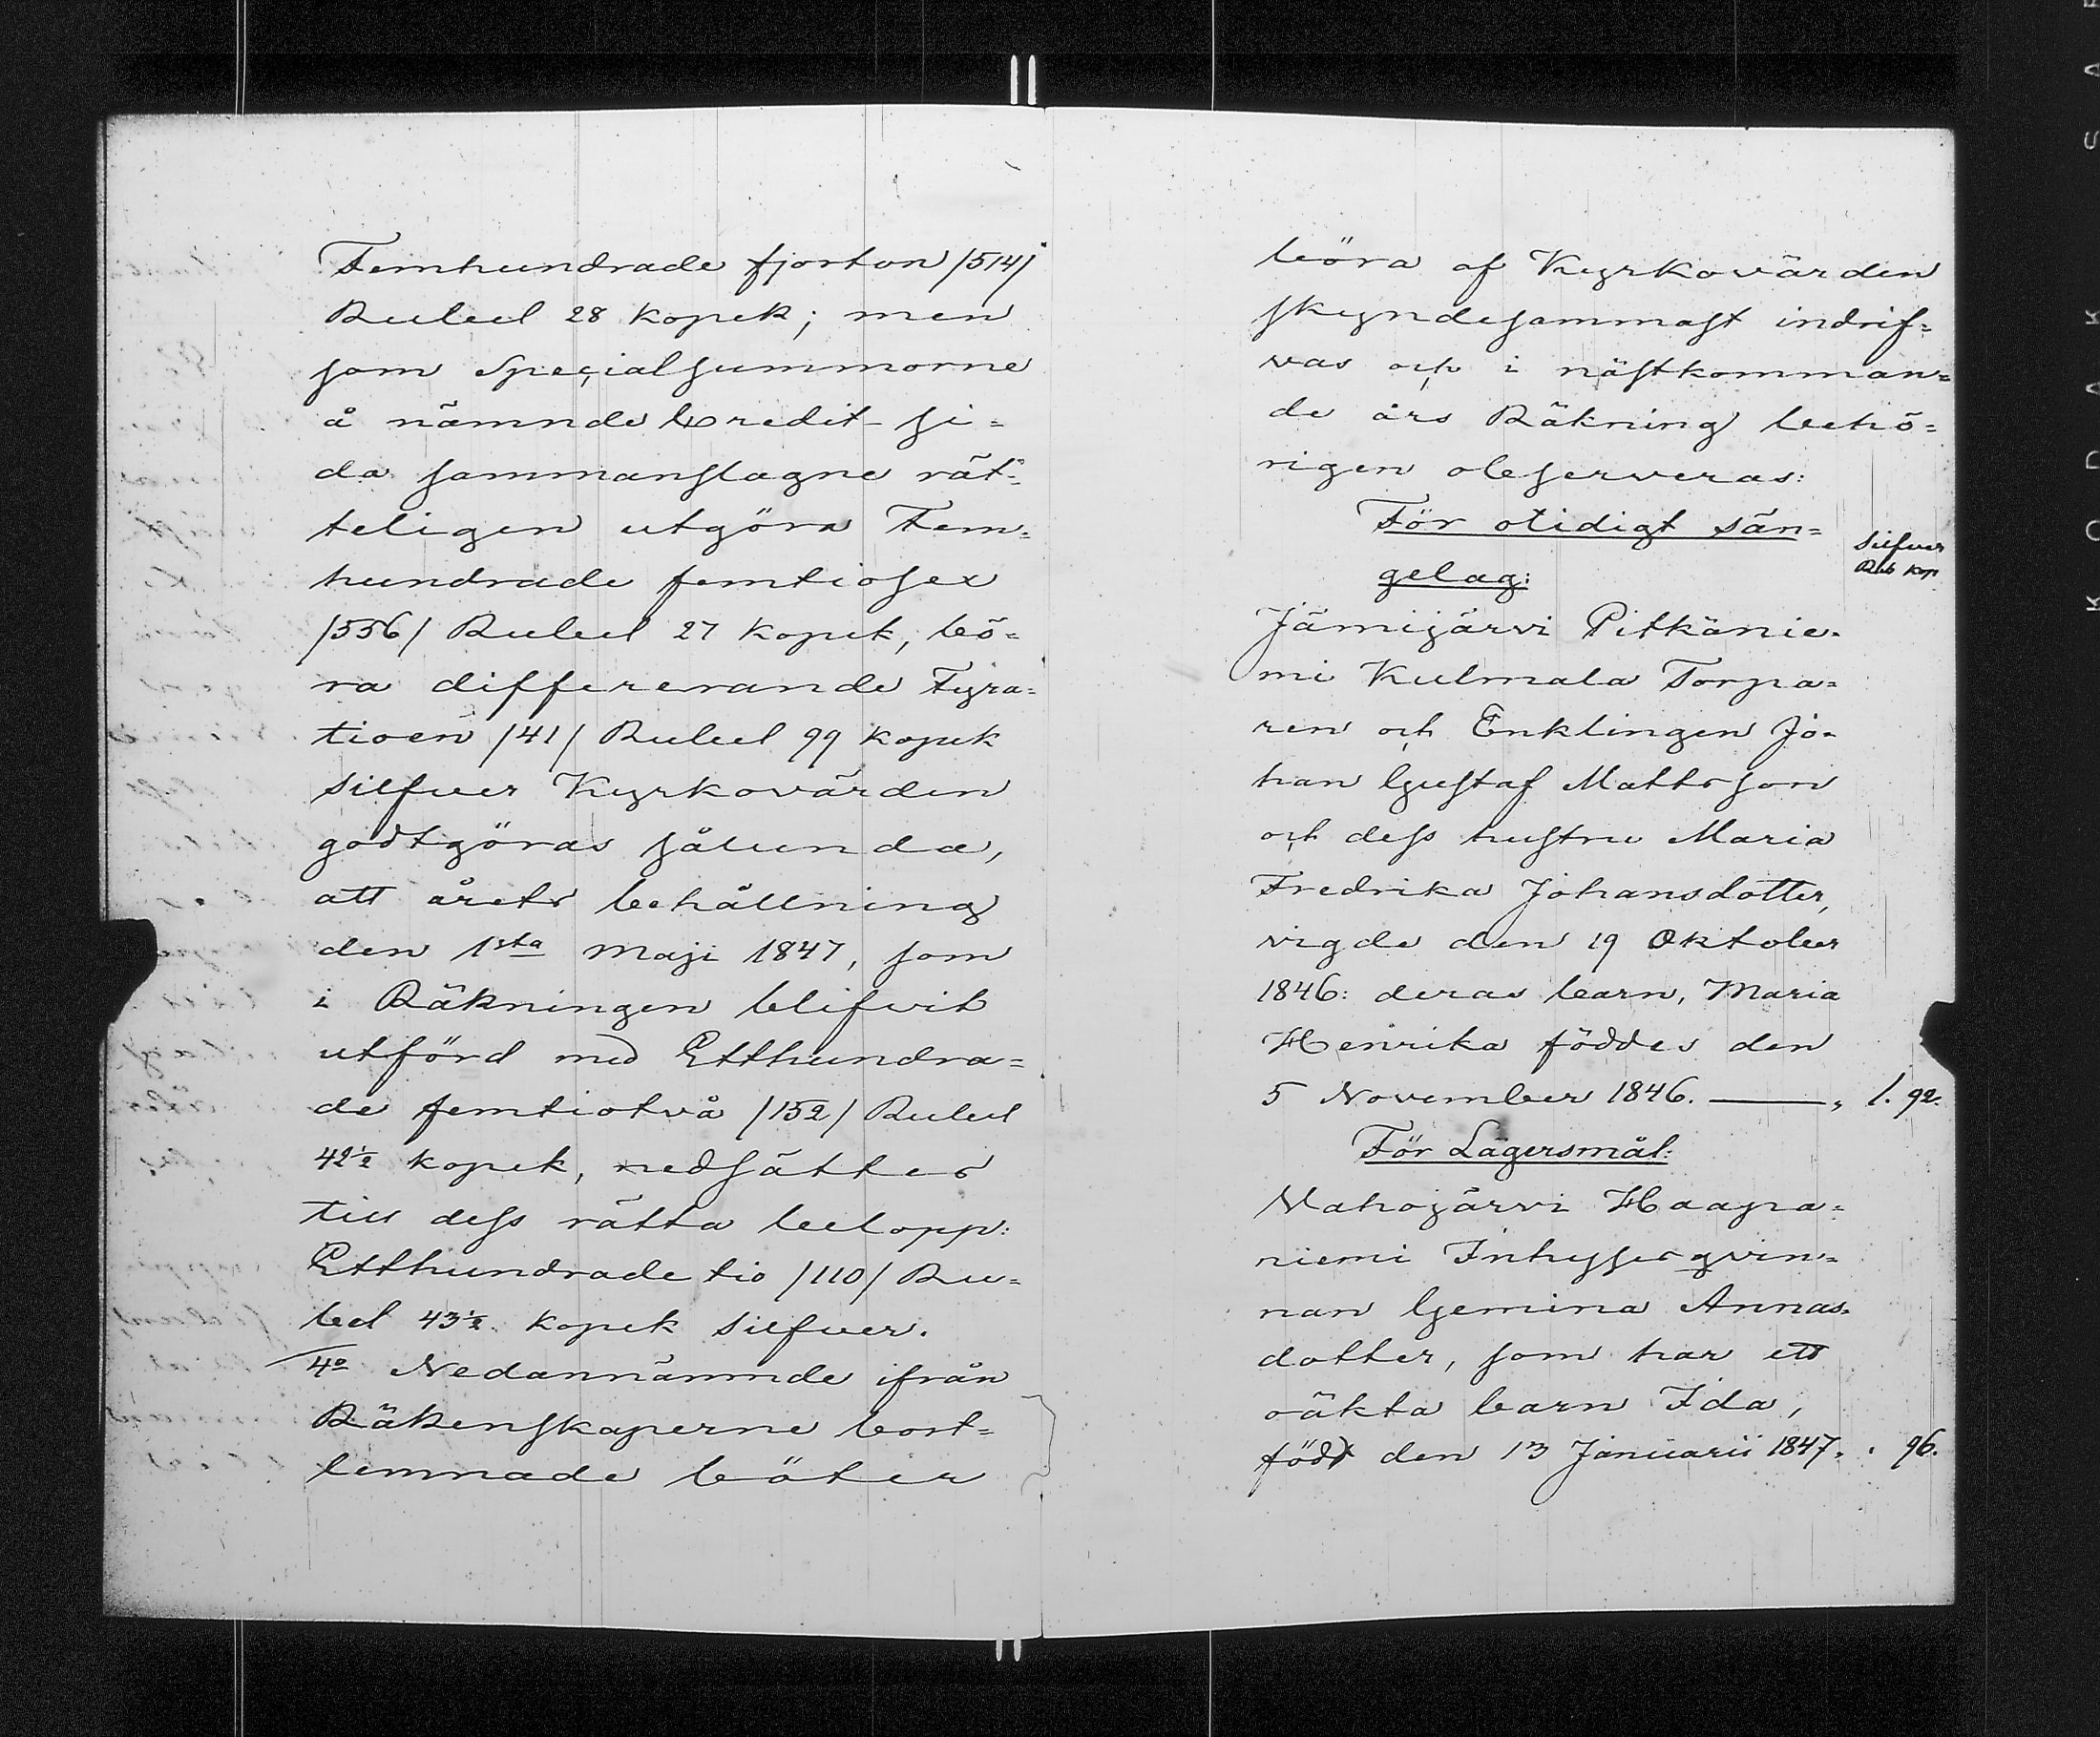 Femhundrade fjorton /514/
Rubel 28 kopek; men
som Specialsummorne
å nämnde Credit-si=
da sammanslagne rät=
teligen utgöra Fem=
hundrade femtiosex
/556/ Rubel 27 kopek, bö=
ra differerande Fyra=
tioen /41/ Rubel 99 kopek
silfver Kyrkovärden
godtgöras sålunda,
att årets behållning
den 1sta Maji 1847, som
i Räkningen blifvit
utförd med Etthundra=
de femtiotvå /152/ Rubel
42½ kopek, nedsättes
till dess rätta belopp:
Etthundrade tio /110/ Ru=
bel 43½ kopek silfver.
4o Nedannämnde ifrån
Räkenskaperne bort=
lemnade böter
böra af Kyrkovärden
skyndesammast indrif=
vas och i nästkomman=
de års Räkning behö=
rigen observeras:
För otidigt sän=
gelag:
Silfver
Rub kop
Jämijärvi Pitkänie=
mi Kulmala Torpa=
ren och Enklingen Jo=
han Gustaf Mattsson
och dess hustru Maria
Fredrika Johansdotter,
vigde den 19 Oktober
1846: deras barn, Maria
Henrika föddes den
5 November 1846. ——— „ 1. 92.
För Lägersmål:
Vahojärvi Haapa=
niemi Inhysesqvin=
nan Gemina Annas=
dotter, som har ett
oäkta barn Ida,
född den 13 Januarii 1847. . 96.
KODAK SAF